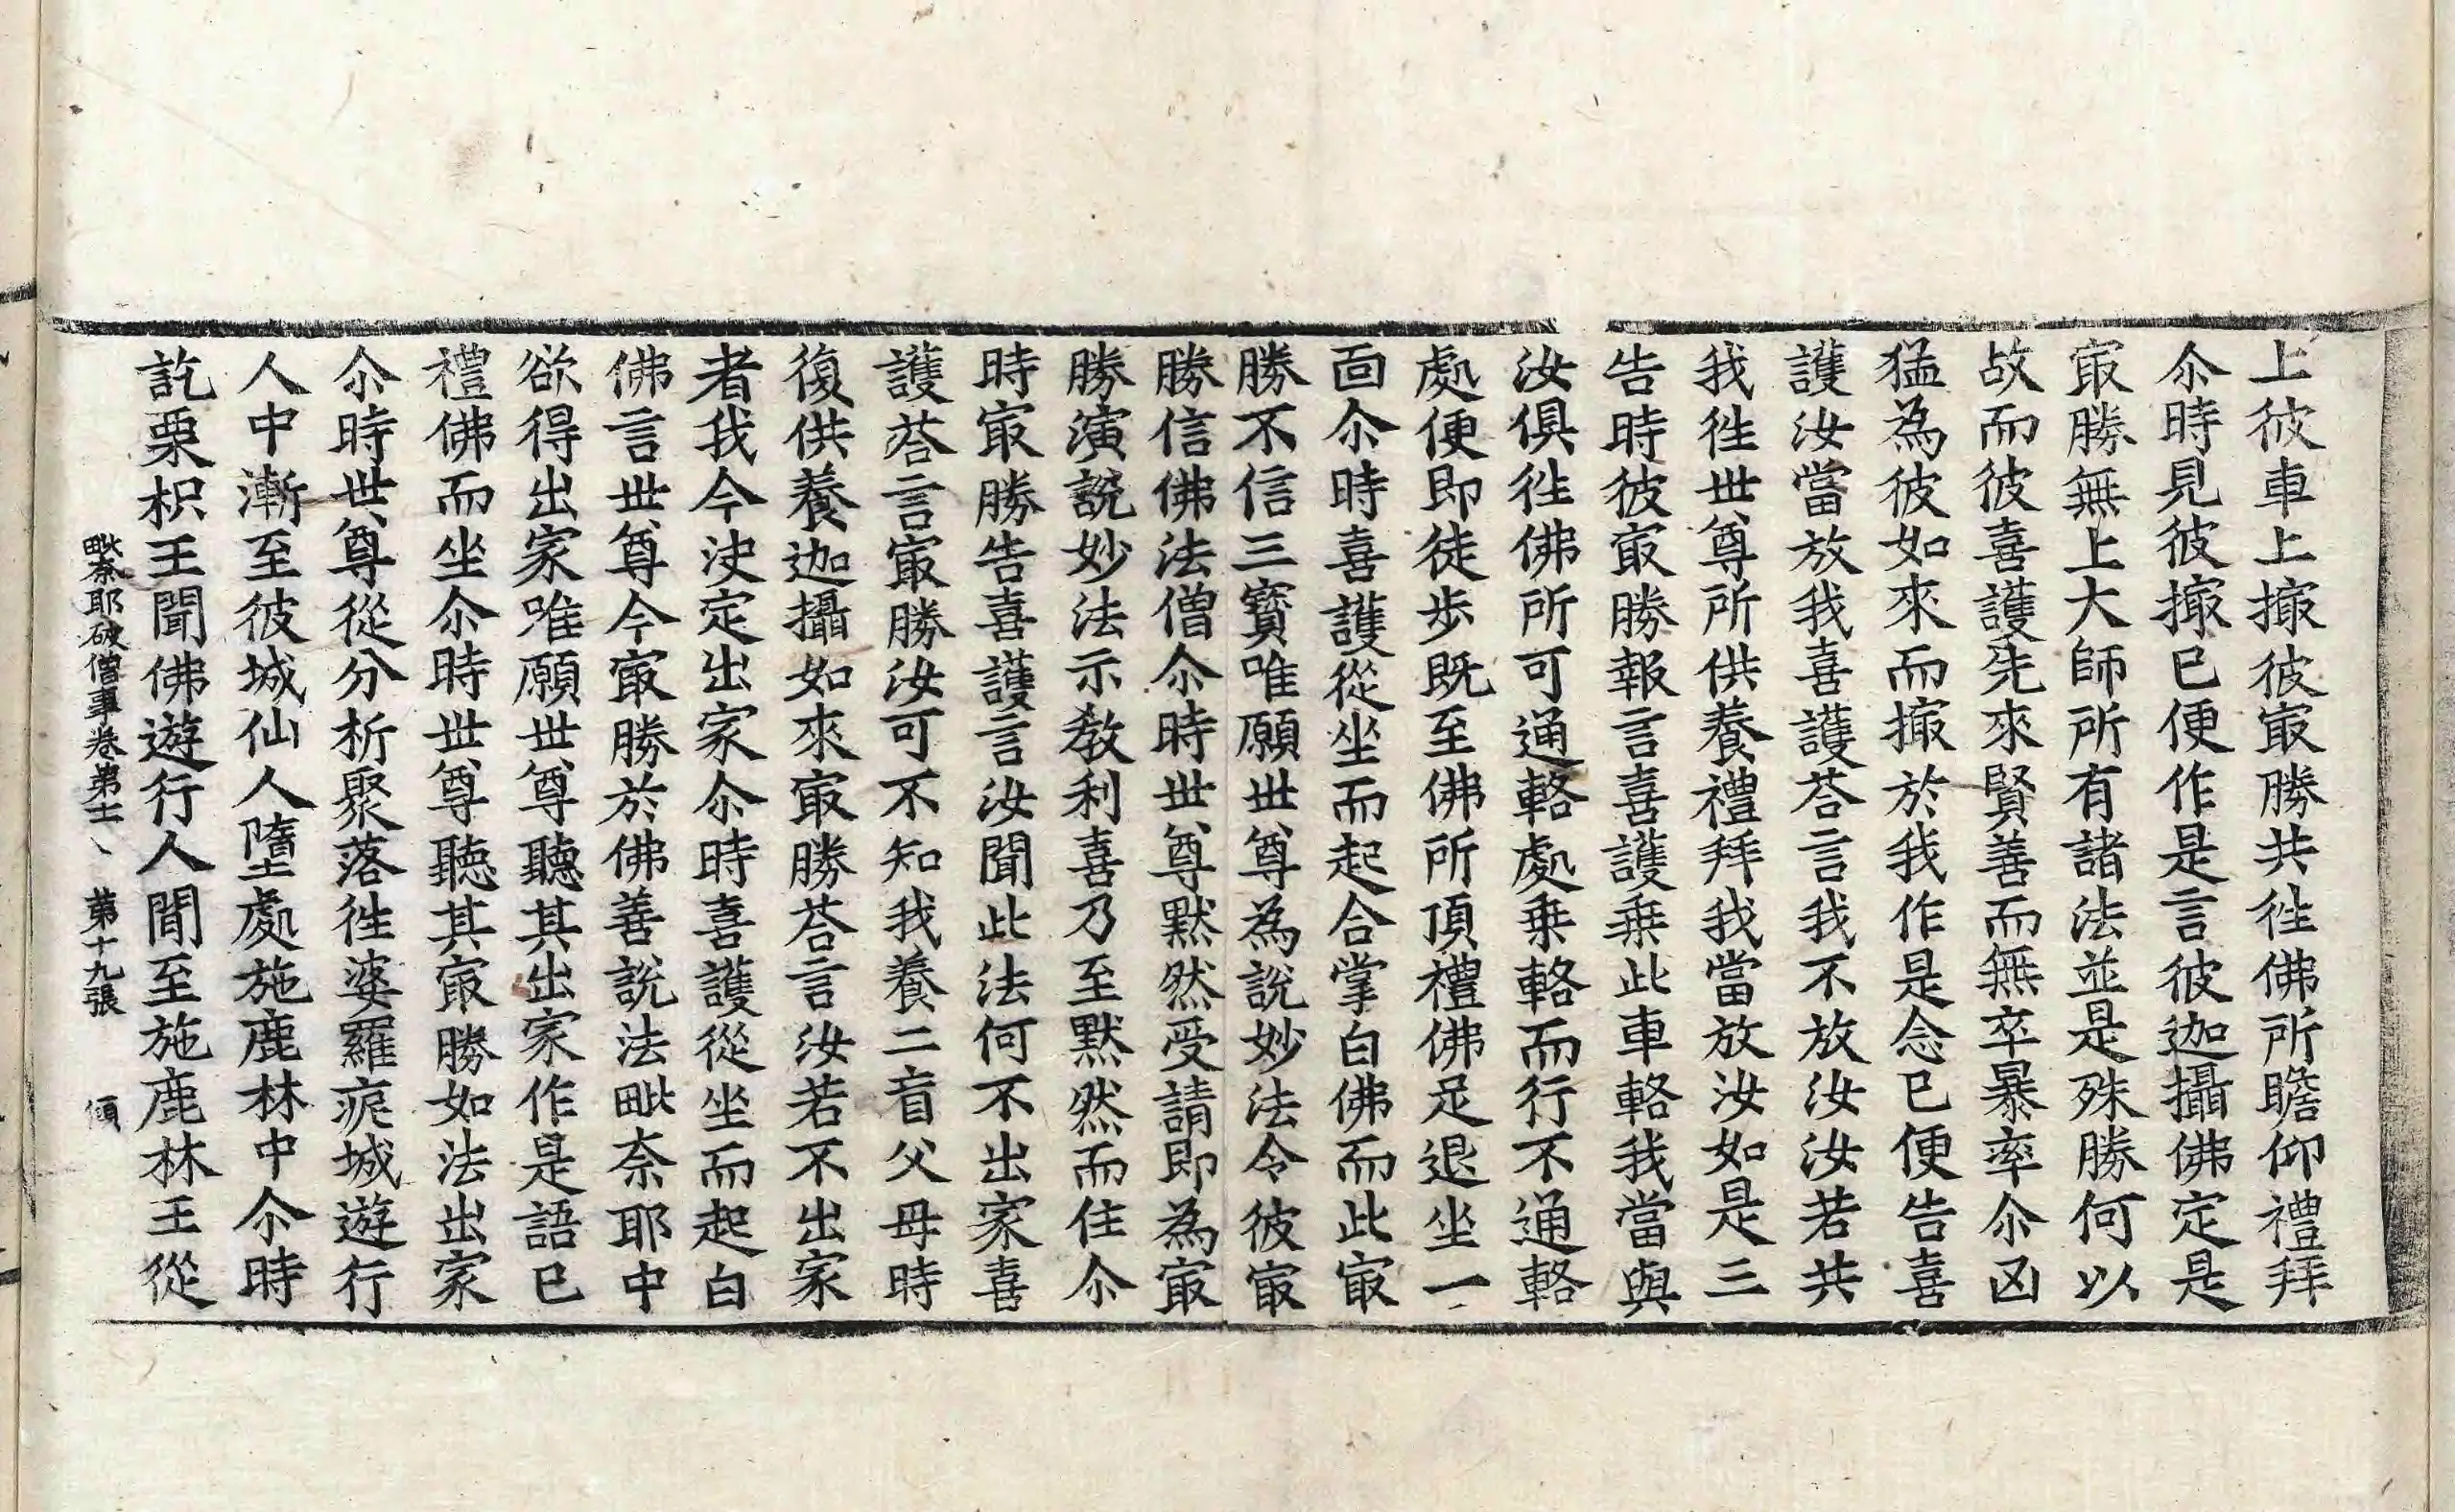 上彼車上撮彼㝡勝共徃佛所瞻仰禮拜
尒時見彼撮已便作是言彼迦攝佛定是
㝡勝無上大師所有諸法並是殊勝何以
故而彼喜護先來賢善而無卒暴率尒凶
猛為彼如來而撮於我作是念已便告喜
護汝當放我喜護荅言我不放汝汝若共
我徃世尊所供養禮拜我當放汝如是三
告時彼㝡勝報言喜護乗此車輅我當與
汝俱徃佛所可通輅處乗輅而行不通輅
處便即徒歩既至佛所頂禮佛足退坐一
面尒時喜護從坐而起合掌白佛而此㝡
勝不信三寳唯願世尊為說妙法令彼㝡
勝信佛法僧尒時世尊默然受請即為㝡
勝演說妙法示教利喜乃至默然而住尒
時㝡勝告喜護言汝聞此法何不出家喜
護荅言㝡勝汝可不知我養二盲父母時
復供養迦攝如來㝡勝荅言汝若不出家
者我今决定出家尒時喜護從坐而起白
佛言世尊今㝡勝於佛善說法毗奈耶中
欲得出家唯願世尊聽其出家作是語已
禮佛而坐尒時世尊聽其㝡勝如法出家
尒時世尊從分析聚落徃婆羅痆城遊行
人中漸至彼城仙人墮處施鹿林中尒時
訖栗枳王聞佛遊行人閒至施鹿林王從
毗奈耶破僧事卷第十一 第十九張 傾